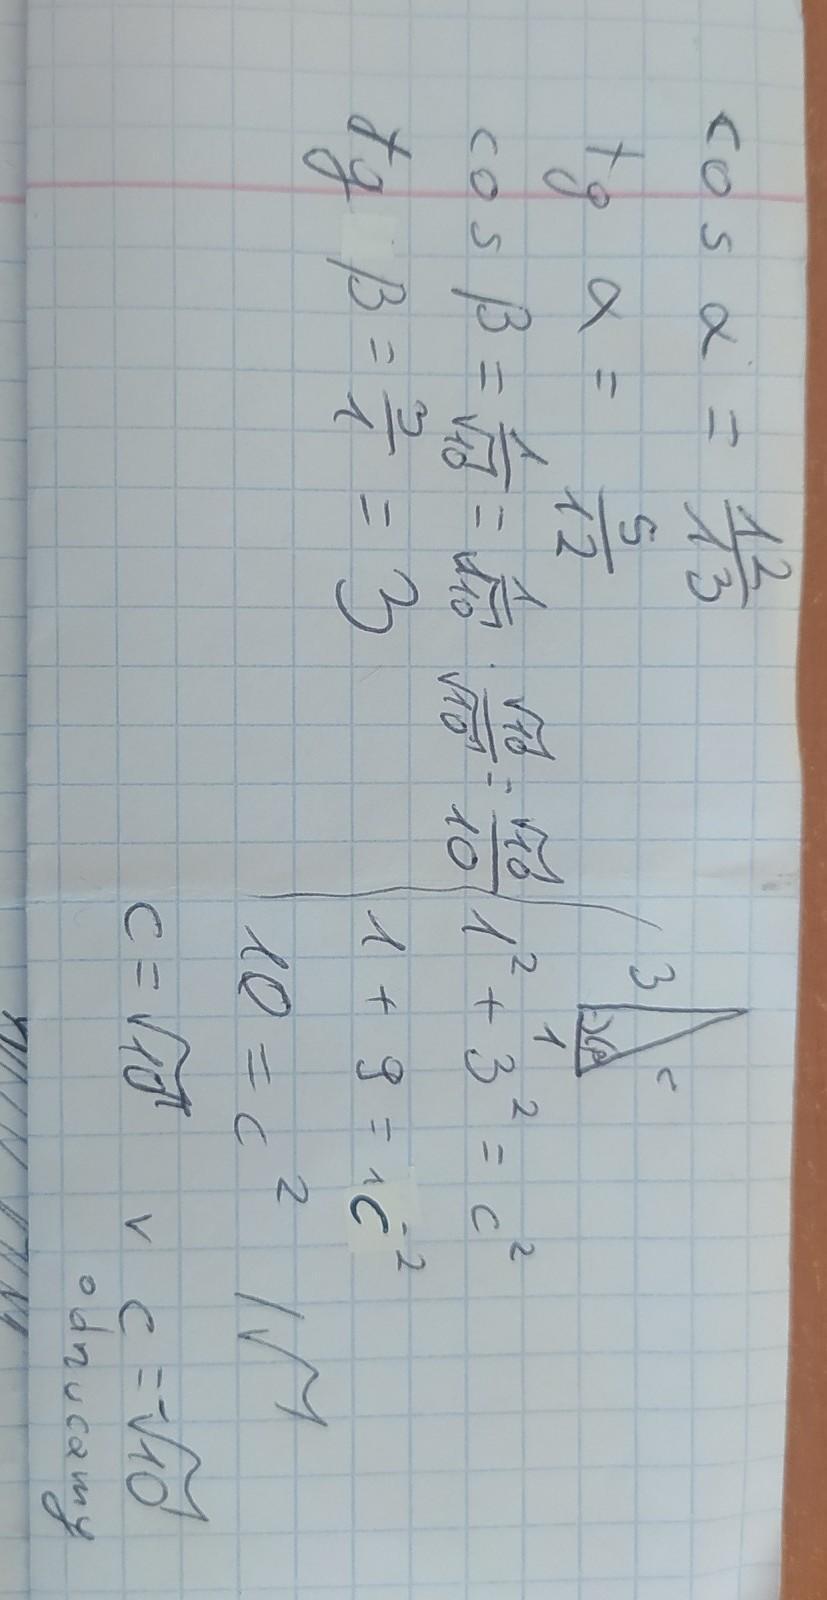 cos α = 12/13
tg α = 5/12
cos β = 1/√10 = 1/√10 · √10/√10 = √10/10
tg β = 3/1 = 3
3
c
1
1² + 3² = c²
1 + 9 = c²
10 = c² /√
c = √10 v c = -√10
odrzucamy